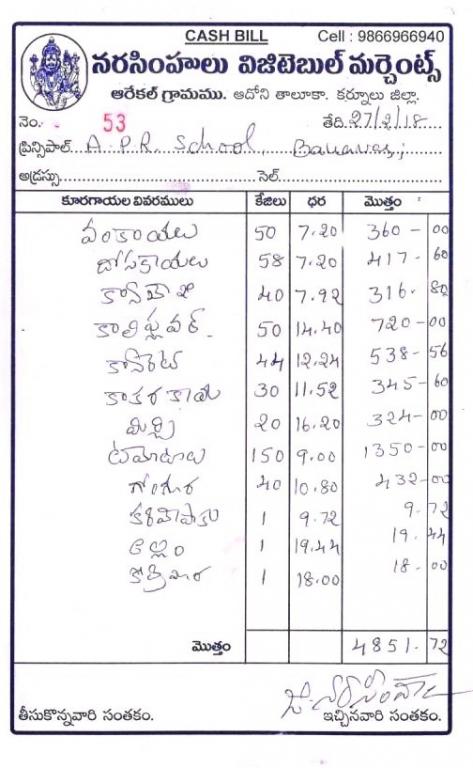 CASH BILL Cell : 9866966940
నరసింహులు విజిటెబుల్ మర్చెంట్స్
ఆరేకల్ గ్రామము. ఆదోని తాలూకా. కర్నూలు జిల్లా.
నెం. 53 తేది. 27/2/18
ప్రిన్సిపాల్ A.P.R. School,
అడ్రస్సు సెల్.
కూరగాయల వివరములు కేజీలు ధర మొత్తం
వంకాయలు 50 7.20 360-00
దోసకాయలు 58 7.20 417-60
40 7.92 316.80
కాలిఫ్లవర్ 50 14.40 720-00
క్యారెట్ 44 12.24 538-56
కాకరకాయ 30 11.52 345-60
మిర్చి 20 16.20 324-00
టమోటాలు 150 9.00 1350-00
గోంగూర 40 10.80 432-00
కరివేపాకు 1 9.72 9.72
అల్లం 1 19.44 19.44
కొత్తిమీర 1 18.00 18-00
మొత్తం 4851.72
తీసుకొన్నవారి సంతకం. ఇచ్చినవారి సంతకం.